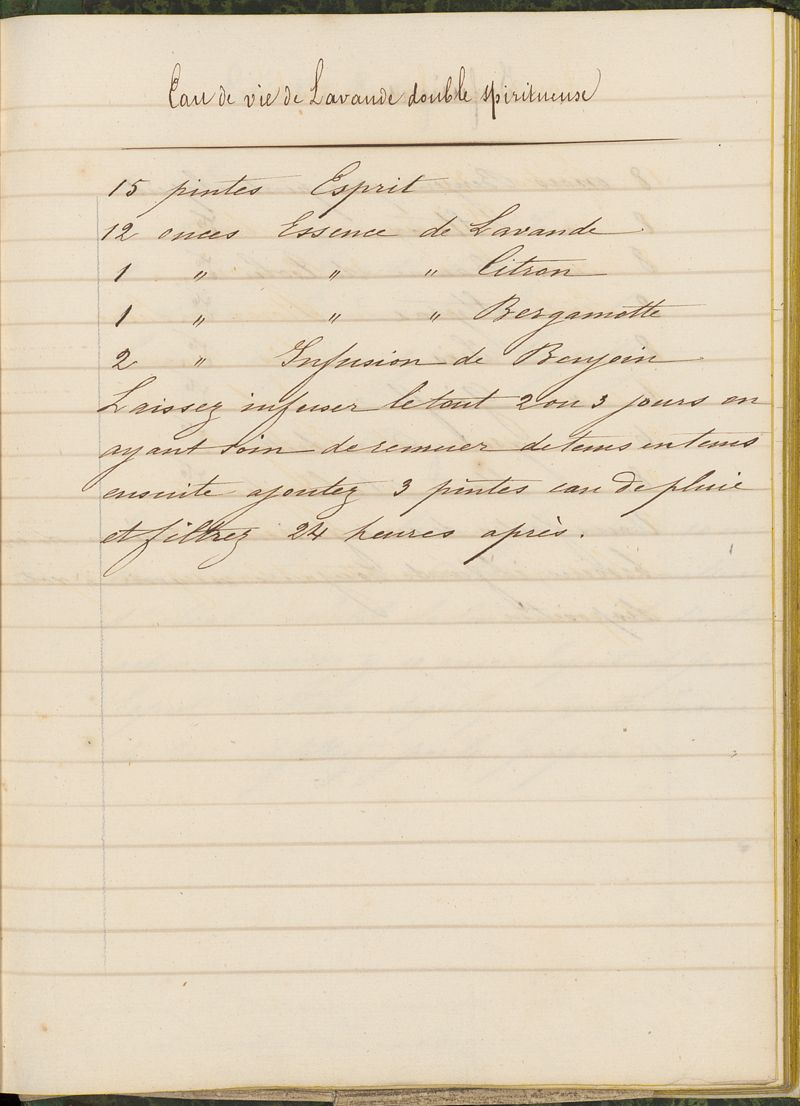 Eau de vie de Lavande double spiritueuse
15 pintes Esprit
12 onces Essence de Lavande
1 " " " Citron
1 " " " Bergamotte
2 " Infusion de Benjoin
Laissez infuser le tout 2 ou 3 jours en
ayant soin de remuer de tems en tems
ensuite ajoutez 3 pintes eau de pluie
et filtrez 24 heures après.